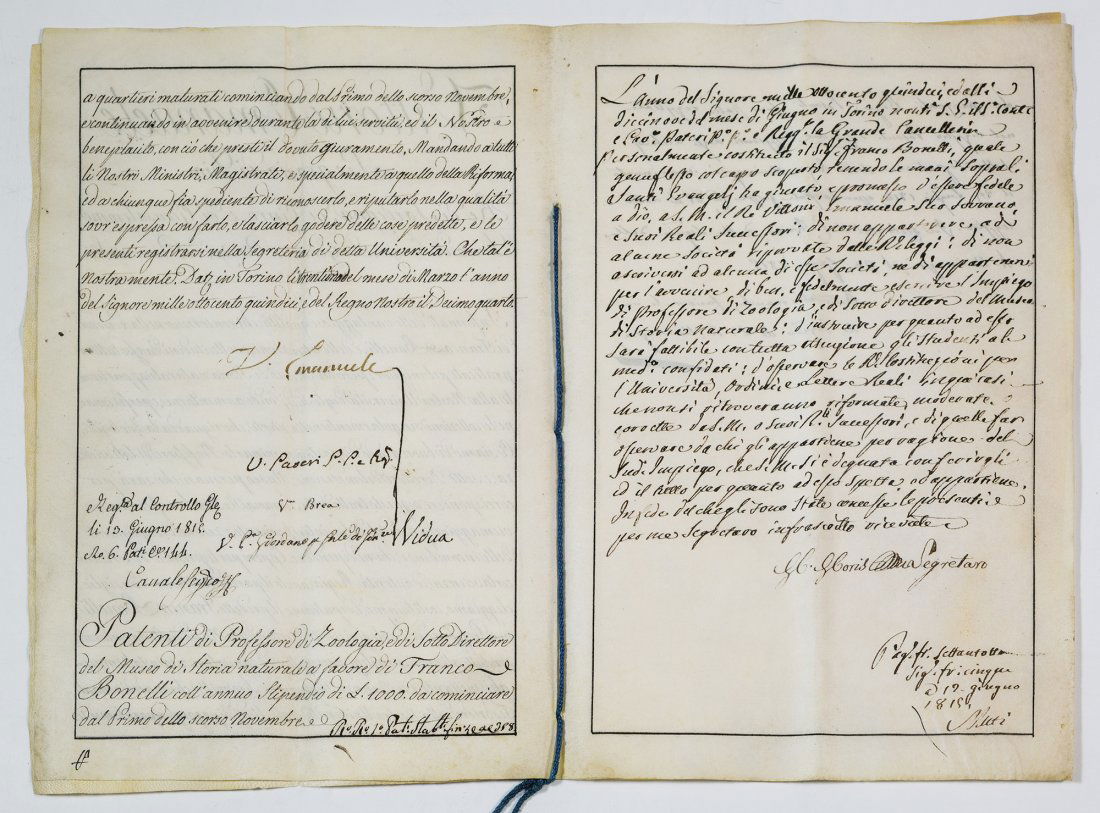 a quartieri maturati cominciando dal Primo dello scorso Novembre,
e continuando in avvenire durante la di lui servitù, ed il Nostro
beneplacito, con ciò che presti il dovuto giuramento. Mandando a tutti
li Nostri Ministri, Magistrati, e specialmente a quello della Riforma,
ed a chiunque fia spediente di riconoscerlo, e riputarlo nella qualità
sovr'espressa con farlo, e lasciarlo godere delle cose predette, e le
presenti registrarsi nella Segreteria di detta Università. Che tal'è
Nostra mente. Dat. in Torino li trentuno del mese di Marzo l'anno
del Signore mille ottocento quindici, e del Regno Nostro il Decimoquarto
V. Emanuele
V. Paseri P. P. e Rg.
V. Brea
Vidua
e Reg.to al Controllo Gle
li 19. Giugno 1815
No. 6. Pat. 144.
Patenti di Professore di Zoologia, e di Sotto Direttore
del Museo di Storia naturale a favore di Franco
Bonelli coll'annuo Stipendio di L. 1000. da cominciare
dal Primo dello scorso Novembre
L'anno del Signore mille ottocento quindici, ed alli
diecinove del mese di Giugno in Torino nanti S. E. il S. Conte
e Cav.e Pateri P.o P.e e Regg.te la Grande Cancelleria
Personalmente costituito il Sig. Franco Bonelli, quale
genuflesso col capo scoperto, tenendo le mani sopra li
Santi Evangelj ha giurato, e promesso d'essere fedele
a Dio, a S. M. il Re Vittorio Emanuele Suo Sovrano,
e Suoi Reali Successori: di non appartenere ad
alcune Società riprovate dalle R. Leggi: di non
ascriversi ad alcuna di esse Società, ne di appartenervi
per l'avvenire di bene, e fedelmente esercire l'Impiego
di Professore di Zoologia, e di Sotto direttore del Museo
di Storia Naturale: d'instruire per quanto ad esso
sarà fattibile con tutta attenzione gli Studenti al
med.o confidati: d'osservare le R. Costituzioni per
l'Università, Ordini, e Lettere Reali in que' casi
che non si ritroveranno riformate, moderate,
corrette da S. M. o Suoi R. Successori, e di quelle far
osservare da chi gli appartiene per ragione del
sud.o Impiego, che S. M. si è degnata conferirgli
ed il tutto per quanto ad esso spetta, ed appartiene.
In fede da che gli sono state concesse le presenti
per me Segretaro infrascritto ricevute
Moris Segretaro
Sig. fr. cinque
a 19. giugno
1815